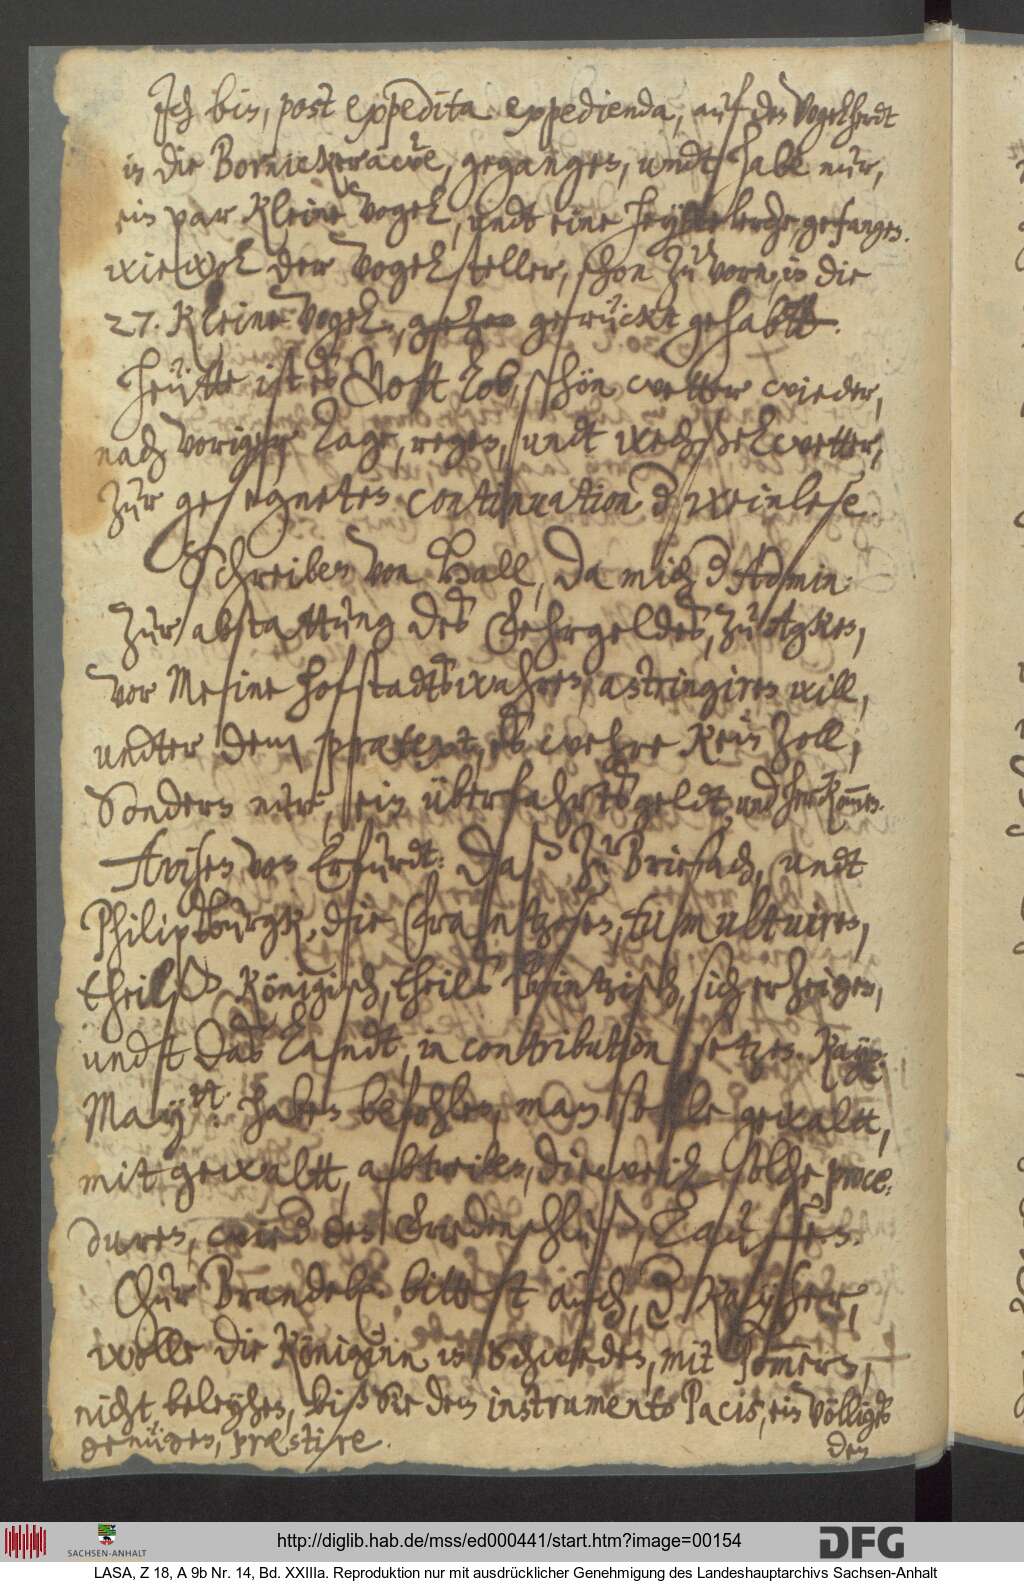 Ich bin, post expedita expedienda, auf den Vogelherdt
in die Bornickeraŵe, gegangen, undt habe nur,
ein par kleine Vogel, undt eine Heydelerche, gefangen.
wiewol der Vogelsteller, schon zu vorn, in die
27. kleine Vogel, gerückt gehabtt.
Heütte ist es Gott lob, schön wetter wieder,
nach voriger Tage, regen, undt wechßelwetter,
zur gesegneten continuation der weinlese.
Schreiben von Hall, da mich der Admin:
zur abstattung des Fehrgeldes, zu Atzken,
vor Meine hofstadtswahren, astringiren will,
undter dem prætext, es wehre kein Zoll,
Sondern nur, ein überfahrtsgeldt, und herkommen.
Avisen von Erfurdt: Daß zu Briesach, undt
Philipsburgk, die Frantzosen, tumultuiren,
theilß Königisch, theils Printzisch, sich erzeigen,
undt das Landt, in contribution setzen. Kay:
May:tt: haben befohlen, man solle gewaltt,
mit gewaltt, abtreiben, dieweil solche proce¬
duren, wieder den Friedenschluß, Lauffen.
Chur Brandeb. bittet auch, der Kayser,
wolle die Königinn in Schweden, mit Pommern,
nicht, beleyhen, biß Sie dem instrumento Pacis, ein völliges
genügen, præstire.
den
http://diglib.hab.de/mss/ed000441/start.htm?image=00154
SACHSEN-ANHALT
DFG
LASA, Z 18, A 9b Nr. 14, Bd. XXIIIa. Reproduktion nur mit ausdrücklicher Genehmigung des Landeshauptarchivs Sachsen-Anhalt